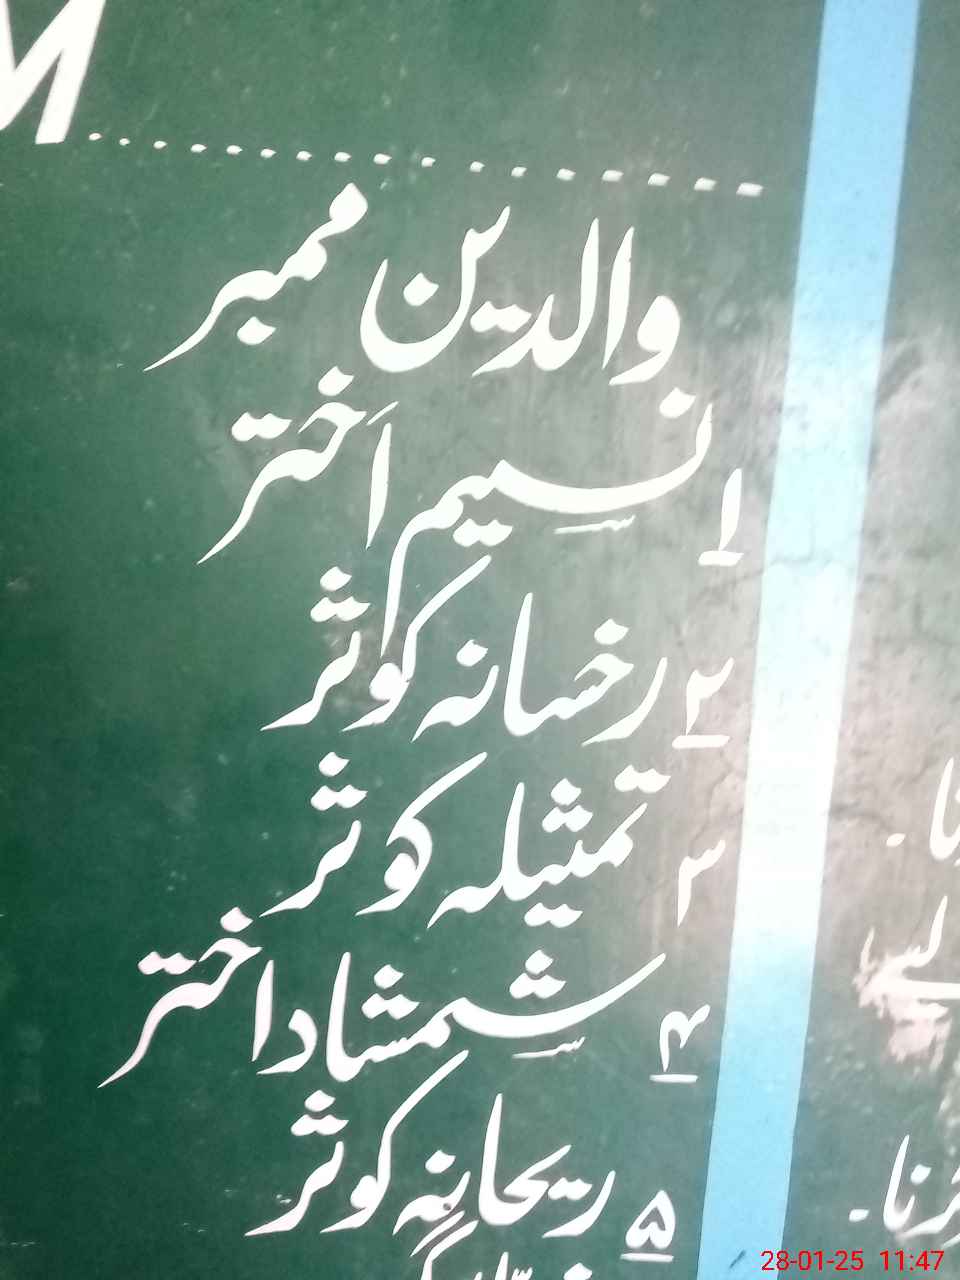 M
والدین ممبر
۱ نسیم اختر
۲ رخسانہ کوثر
۳ تمثیلہ کوثر
۴ شمشاد اختر
۵ ریحانہ کوثر
28-01-25 11:47